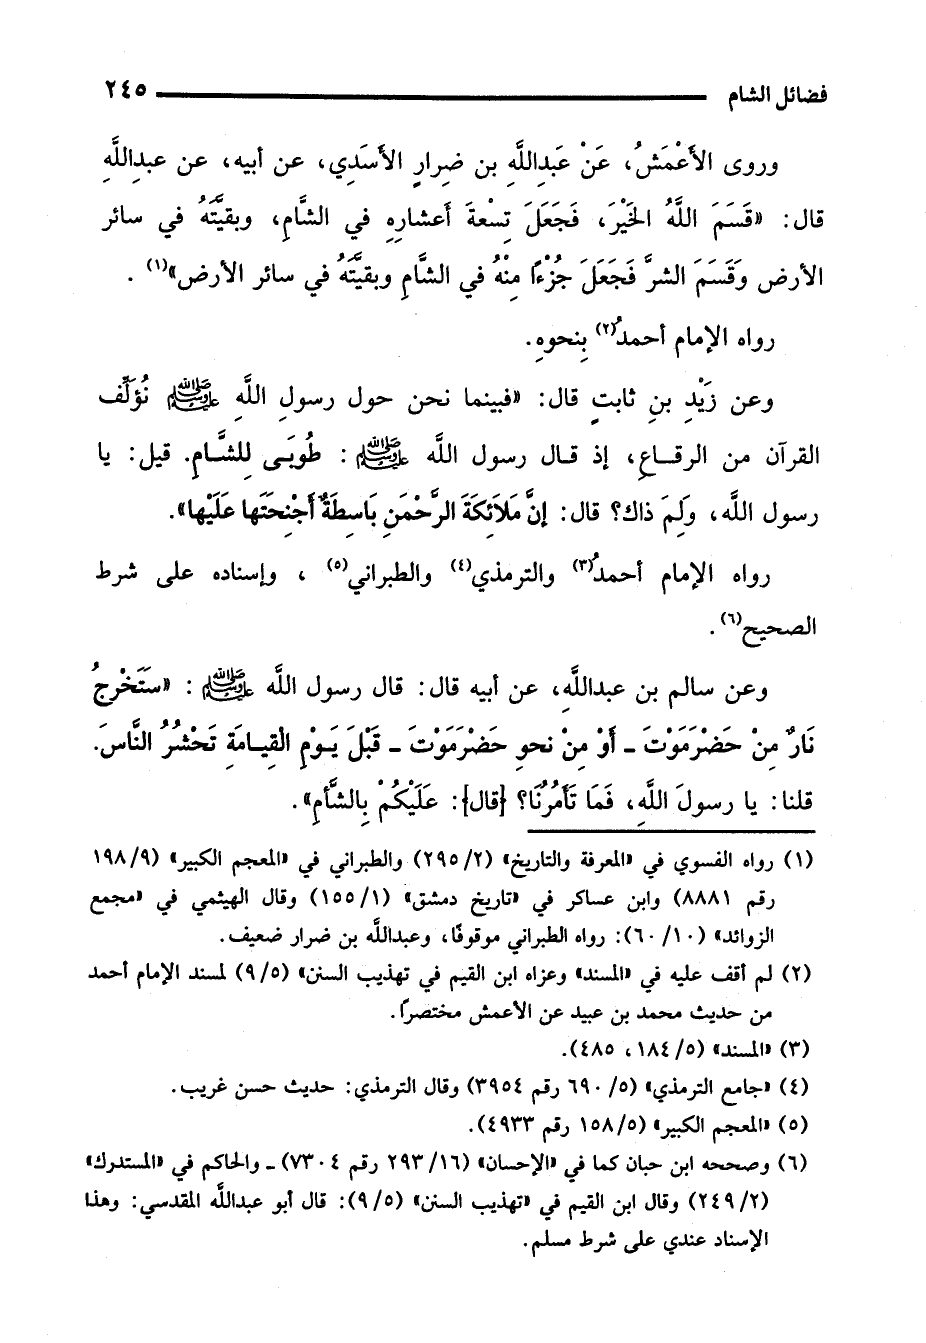 فضائل الشام ٢٤٥
وروى الأَعْمَشُ، عَنْ عَبدِاللَّهِ بن ضِرارٍ الأَسَدِي، عن أبيه، عن عبدِاللَّهِ
قال: «قَسَمَ اللَّهُ الخَيْرَ، فَجَعَلَ تِسْعةَ أَعشارِهِ في الشَّامِ، وبقيَّتَهُ في سائر
الأرض وَقَسَمَ الشرَّ فَجَعَلَ جُزْءًا مِنْهُ في الشَّامِ وبقيَّتَهُ في سائر الأرض»(١) .
رواه الإمام أحمدُ(٢) بِنحوهِ.
وعن زَيْدِ بنِ ثابتٍ قال: «فبينما نحن حول رسولِ اللَّهِ ﷺ نُؤَلِّف
القرآن من الرقـاعِ، إذ قـال رسول اللَّه ﷺ : طُوبَـى لِلشَّـامِ. قيل: يا
رسول اللَّه، وَلِمَ ذاك؟ قال: إنَّ مَلَائِكَةَ الرَّحْمَنِ بَاسِطَةٌ أَجْنِحَتَها عَلَيْها».
رواه الإمام أحمدُ(٣) والترمذي(٤) والطبراني(٥) ، وإسناده على شرط
الصحيح(٦) .
وعن سالم بن عبداللَّهِ، عن أبيه قال: قال رسول اللَّه ﷺ : «سَتَخْرجُ
نَارٌ مِنْ حَضْرَمَوْتَ ـ أَوْ مِنْ نحوِ حَضْرَمَوْتَ ـ قَبْلَ يَـوْمِ الْقِيـامَةِ تَحْشُرُ النَّاسَ.
قلنا: يا رسولَ اللَّهِ، فَمَا تَأْمُرُنَا؟ {قال}: عَلَيْكُمْ بِالشَّأْمِ».
(١) رواه الفسوي في «المعرفة والتاريخ» (٢٩٥/٢) والطبراني في «المعجم الكبير» (١٩٨/٩
رقم ٨٨٨١) وابن عساكر في «تاريخ دمشق» (١٥٥/١) وقال الهيثمي في «مجمع
الزوائد» (٦٠/١٠): رواه الطبراني موقوفًا، وعبداللَّه بن ضرار ضعيف.
(٢) لم أقف عليه في «المسند» وعزاه ابن القيم في تهذيب السنن» (٩/٥) لمسند الإمام أحمد
من حديث محمد بن عبيد عن الأعمش مختصرًا.
(٣) «المسند» (١٨٤/٥، ٤٨٥).
(٤) «جامع الترمذي» (٦٩٠/٥ رقم ٣٩٥٤) وقال الترمذي: حديث حسن غريب.
(٥) «المعجم الكبير» (١٥٨/٥ رقم ٤٩٣٣).
(٦) وصححه ابن حبان كما في «الإحسان» (٢٩٣/١٦ رقم ٧٣٠٤) ـ والحاكم في «المستدرك»
(٢٤٩/٢) وقال ابن القيم في «تهذيب السنن» (٩/٥): قال أبو عبداللَّه المقدسي: وهذا
الإسناد عندي على شرط مسلم.